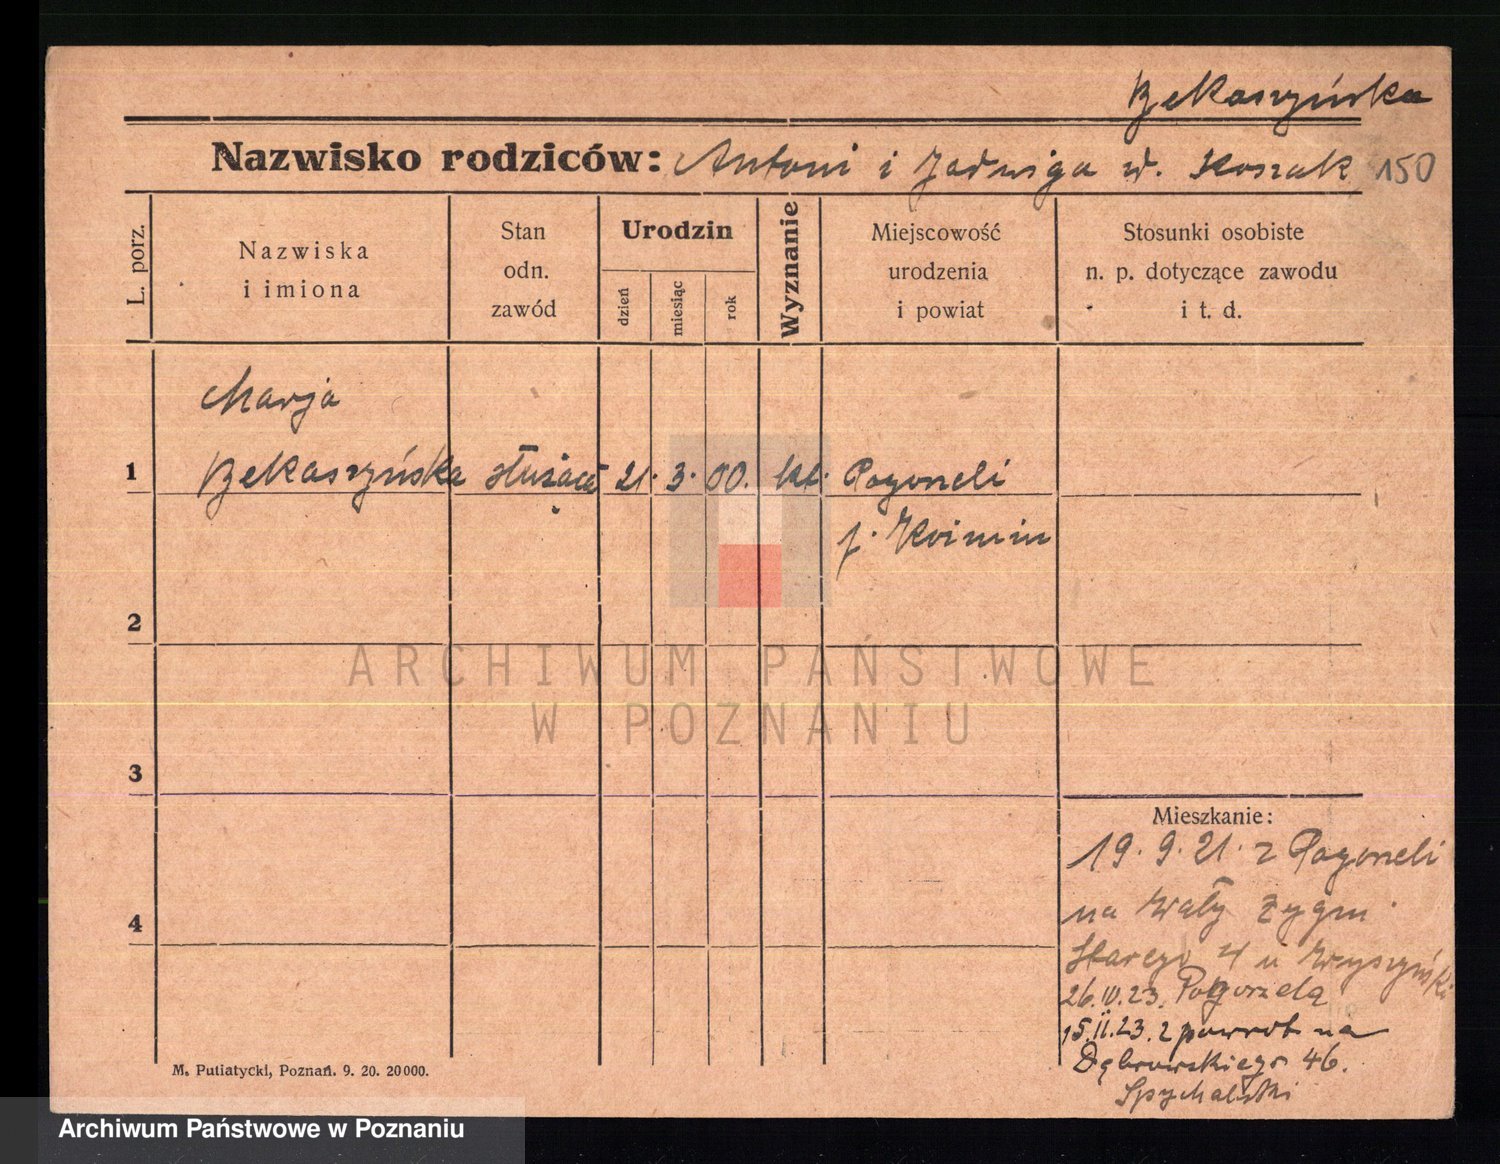 Bękaszyńska
Nazwisko rodziców: Antoni i Jadwiga d. Koszak 150
L. porz.
Nazwiska
i imiona
Stan
odn.
zawód
Urodzin
dzień
miesiąc
rok
Wyznanie
Miejscowość
urodzenia
i powiat
Stosunki osobiste
n. p. dotyczące zawodu
i t. d.
Marja
1 Bękaszyńska służąca 21. 3. 00. kt. Pogorzeli
p. Koźmin
2
ARCHIWUM PAŃSTWOWE
W POZNANIU
3
Mieszkanie:
19. 9. 21. z Pogorzeli
4
na Wały Zygm.
Starego 4 u Wyszyński
26. 23. Pogorzela
15.II.23. z powrot na
Dąbrowskiego 46.
Spychalski
M. Putiatycki, Poznań. 9. 20. 20000.
Archiwum Państwowe w Poznaniu